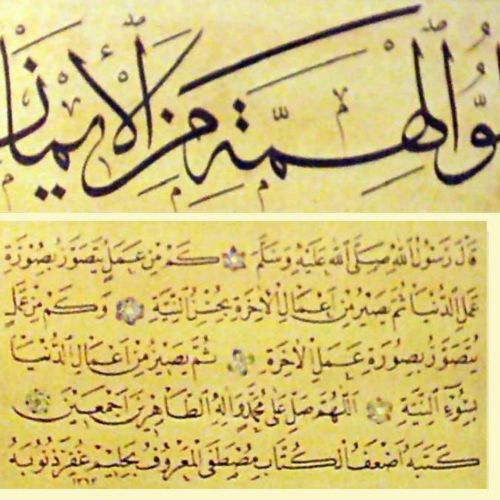 علو الهمة من الإيمان
قال رسول الله صلى الله عليه وسلم كم من عمل يتصور بصورة
عمل الدنيا ثم يصير من اعمال الآخرة بحسن النية وكم من عمل
يتصور بصورة عمل الآخرة ثم يصير من اعمال الدنيا
بسوء النية اللهم صل على محمد واله الطاهرين اجمعين
كتبه اضعف الكتاب مصطفى المعروف بحليم غفر ذنوبه